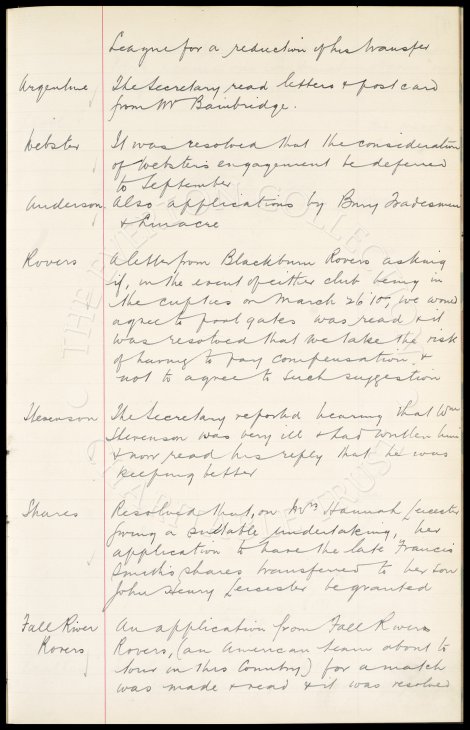 League for a reduction of his transfer
Argentine The Secretary read letters & postcard
from Mr Bainbridge.
Webster It was resolved that the consideration
of Websters engagement be deferred
to September
Anderson Also applications by Bury Tradesmen
& Linacre
Rovers A letter from Blackburn Rovers asking
if, in the event of either club being in
the cupties on March 26 10, we would
agree to pool gates was read & it
was resolved that we take the risk
of having to pay compensation &
not to agree to such suggestion
Stevenson The Secretary reported hearing that Wm
Stevenson was very ill & had written him
& now read his reply that he was
keeping better
Shares Resolved that, on Mrs Hannah Leicester
giving a suitable undertaking, her
application to have the late Francis
Smith's shares transferred to her son
John Henry Leicester be granted
Fall River Rovers An application from Fall Rivers
Rovers, (an American team about to
tour in this Country) for a match
was made & read & it was resolved
THE COLLECTION
CHARITABLE TRUST